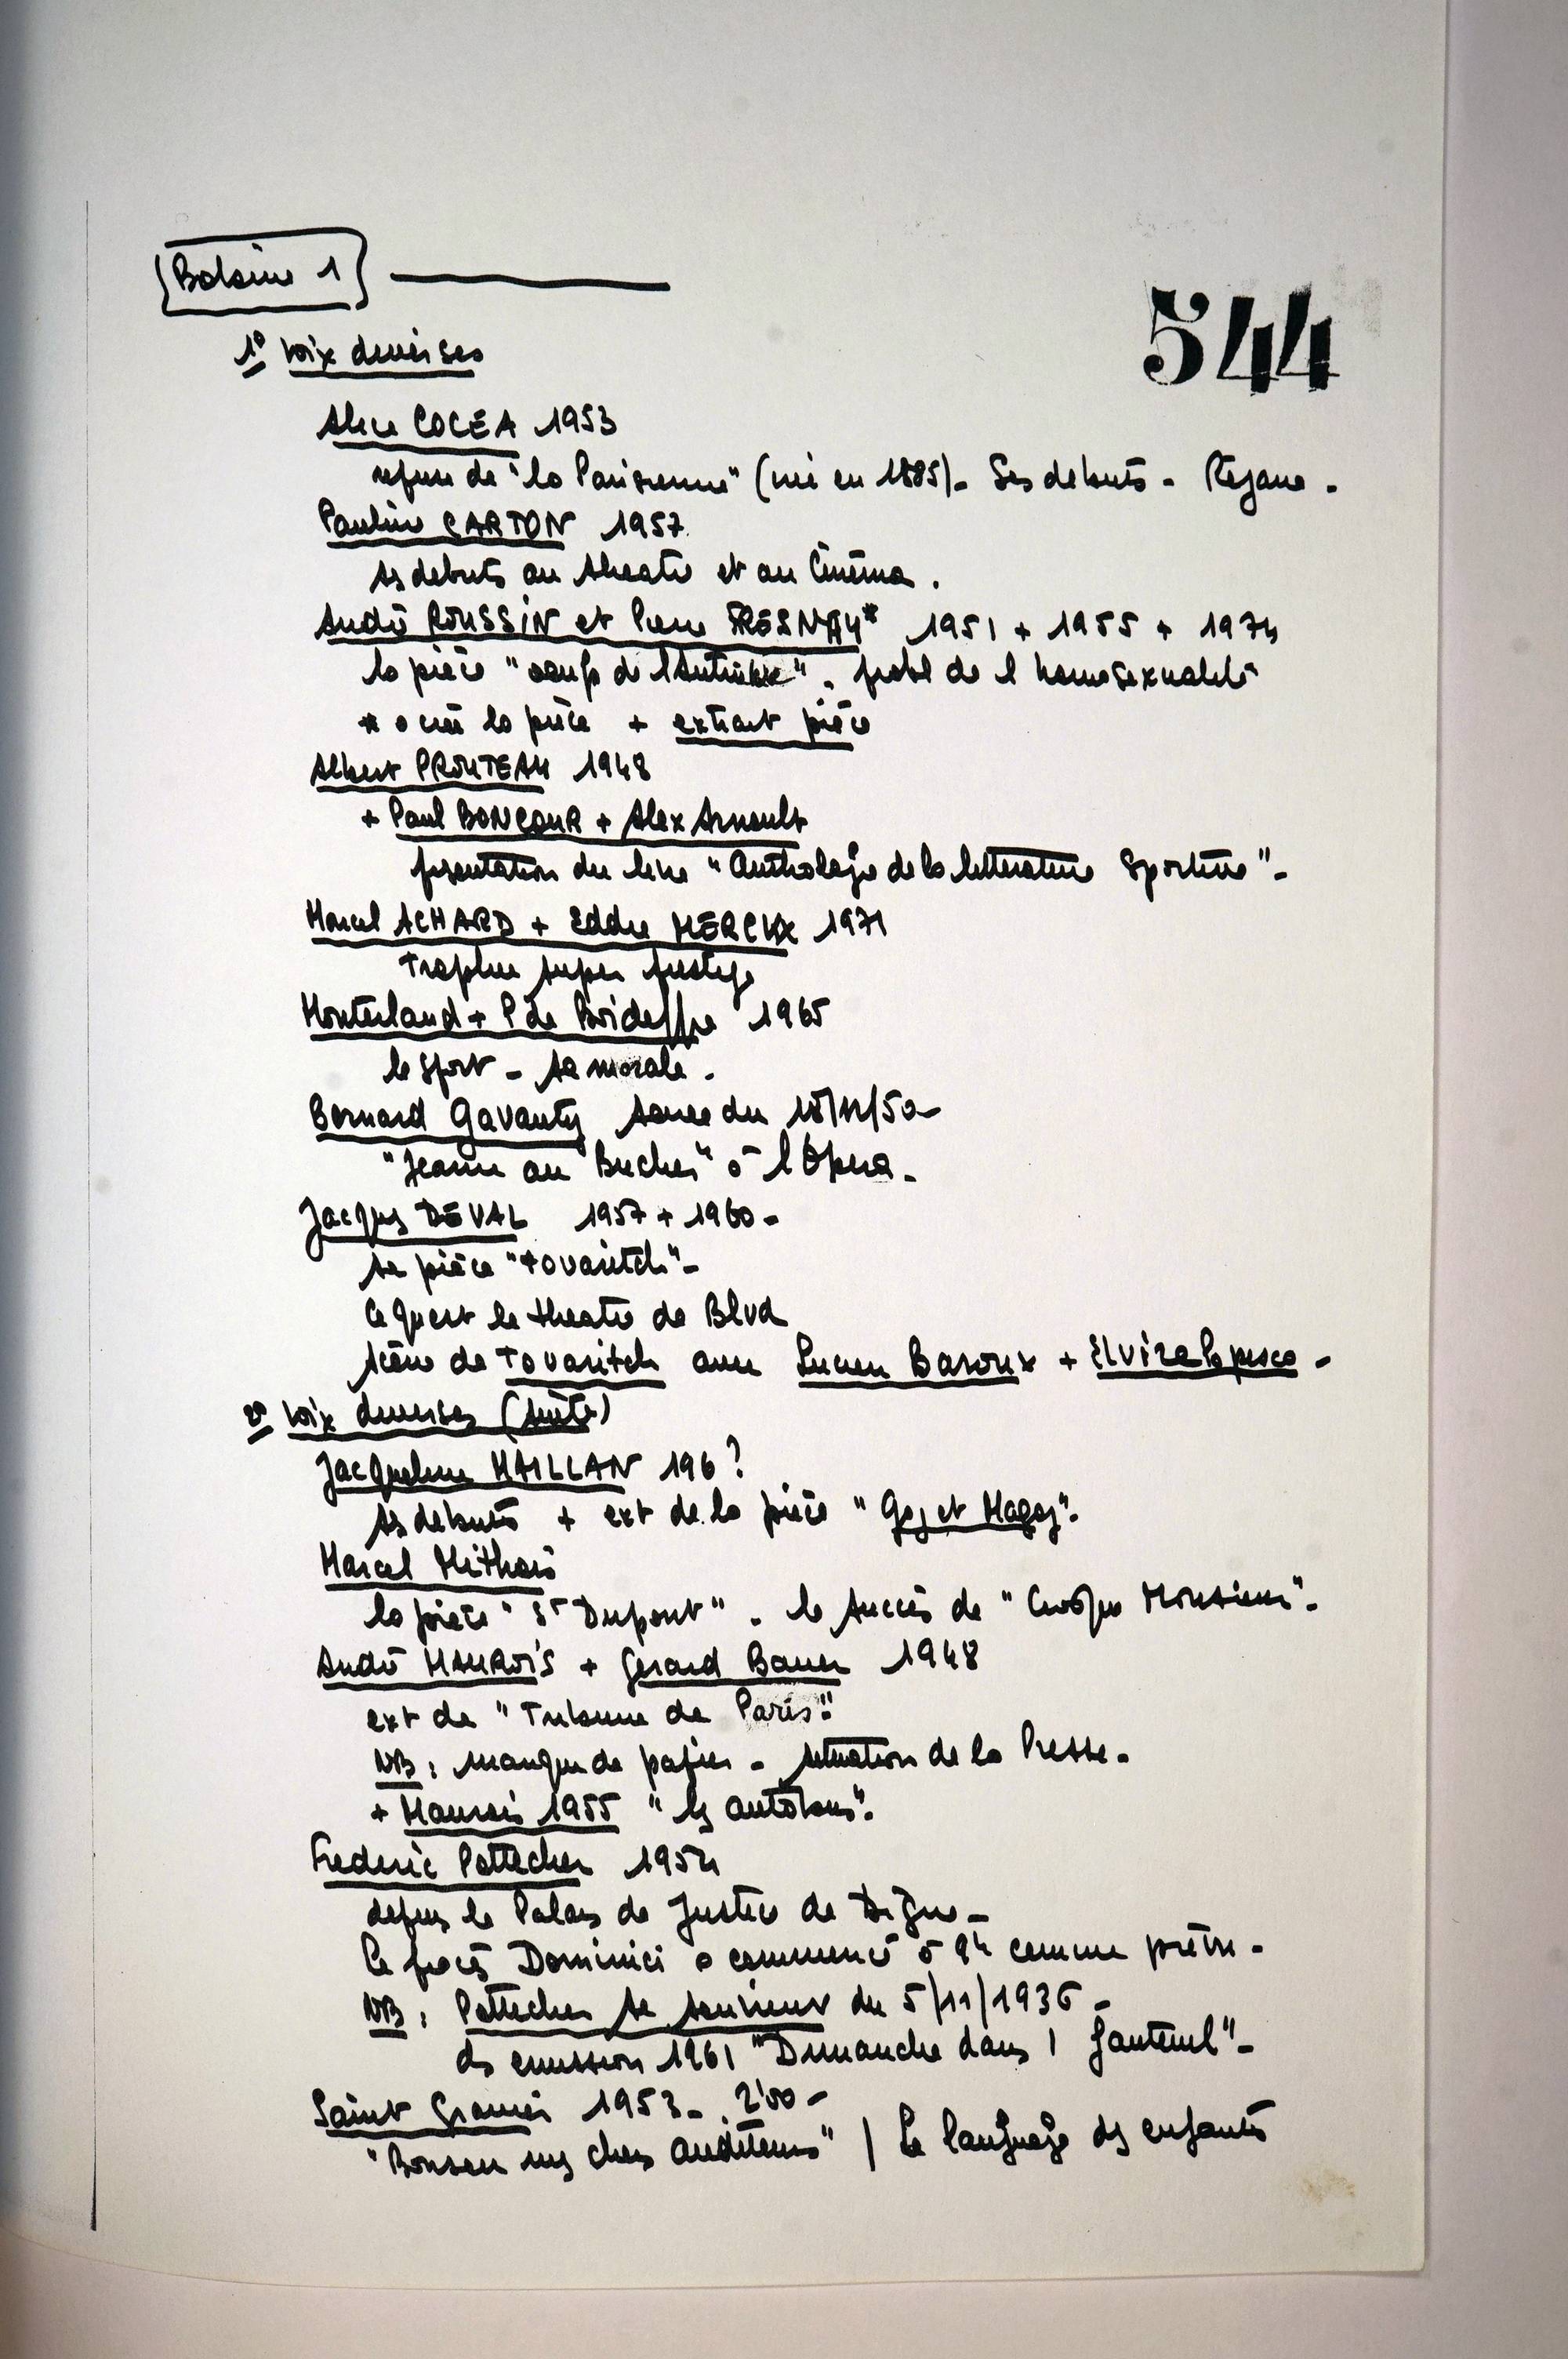 Bobine 1
544
1° Voix diverses
Alice COCÉA 1953
reprise de "la Parisienne" (créé en 1885)- Ses debuts - Rejane -
Pauline CARTON 1957
ses debuts au theatre et au Cinéma.
André ROUSSIN et Pierre FRESNAY* 1951 + 1955 + 1974
la pièce "oeufs de l'Autruche" - probl de l homosexualité
* a créé la pièce + extrait pièce
Albert PROUTEAU 1948
+ Paul BONCOUR + Alex Arnoult
présentation du livre "Anthologie de la litterature Sportive"-
Marcel ACHARD + Eddie MERCKX 1971
Trophée super prestige
Monterland + P de Boideffre 1965
le sport - sa morale.
Bernard Gavanty soiree du 18/12/50-
"Jeanne au Bucher" à l'Opera-
Jacques DEVAL 1957 + 1960-
sa pièce "tovaritch"-
Ce qu'est le theatre de Blvd
scène de Tovaritch avec Lucien Baroux + Elvire Popesco -
2° Voix diverses (suite)
Jacqueline MAILLAN 196?
ses debuts + ext de la pièce "Gog et Magog".
Marcel Mithois
la pièce "St Dupont" - le succès de "Croque Monsieur"-
André MAUROIS + Gerard Bauer 1948
ext de "Tribune de Paris"
NB : manque de papier - situation de la Presse-
+ Maurois 1955 "les autobus".
Frederic Pottecher 1954
depuis le Palais de Justice de Digne-
le procès Dominici a commencé à 9h comme prévu -
NB : Pottecher se souvient du 5/11/1936 -
ds emission 1961 "Dimanche dans 1 fauteuil"-
Saint Granier 1953- 2'00-
"Bonsoir mes chers auditeurs" / Le language des enfants